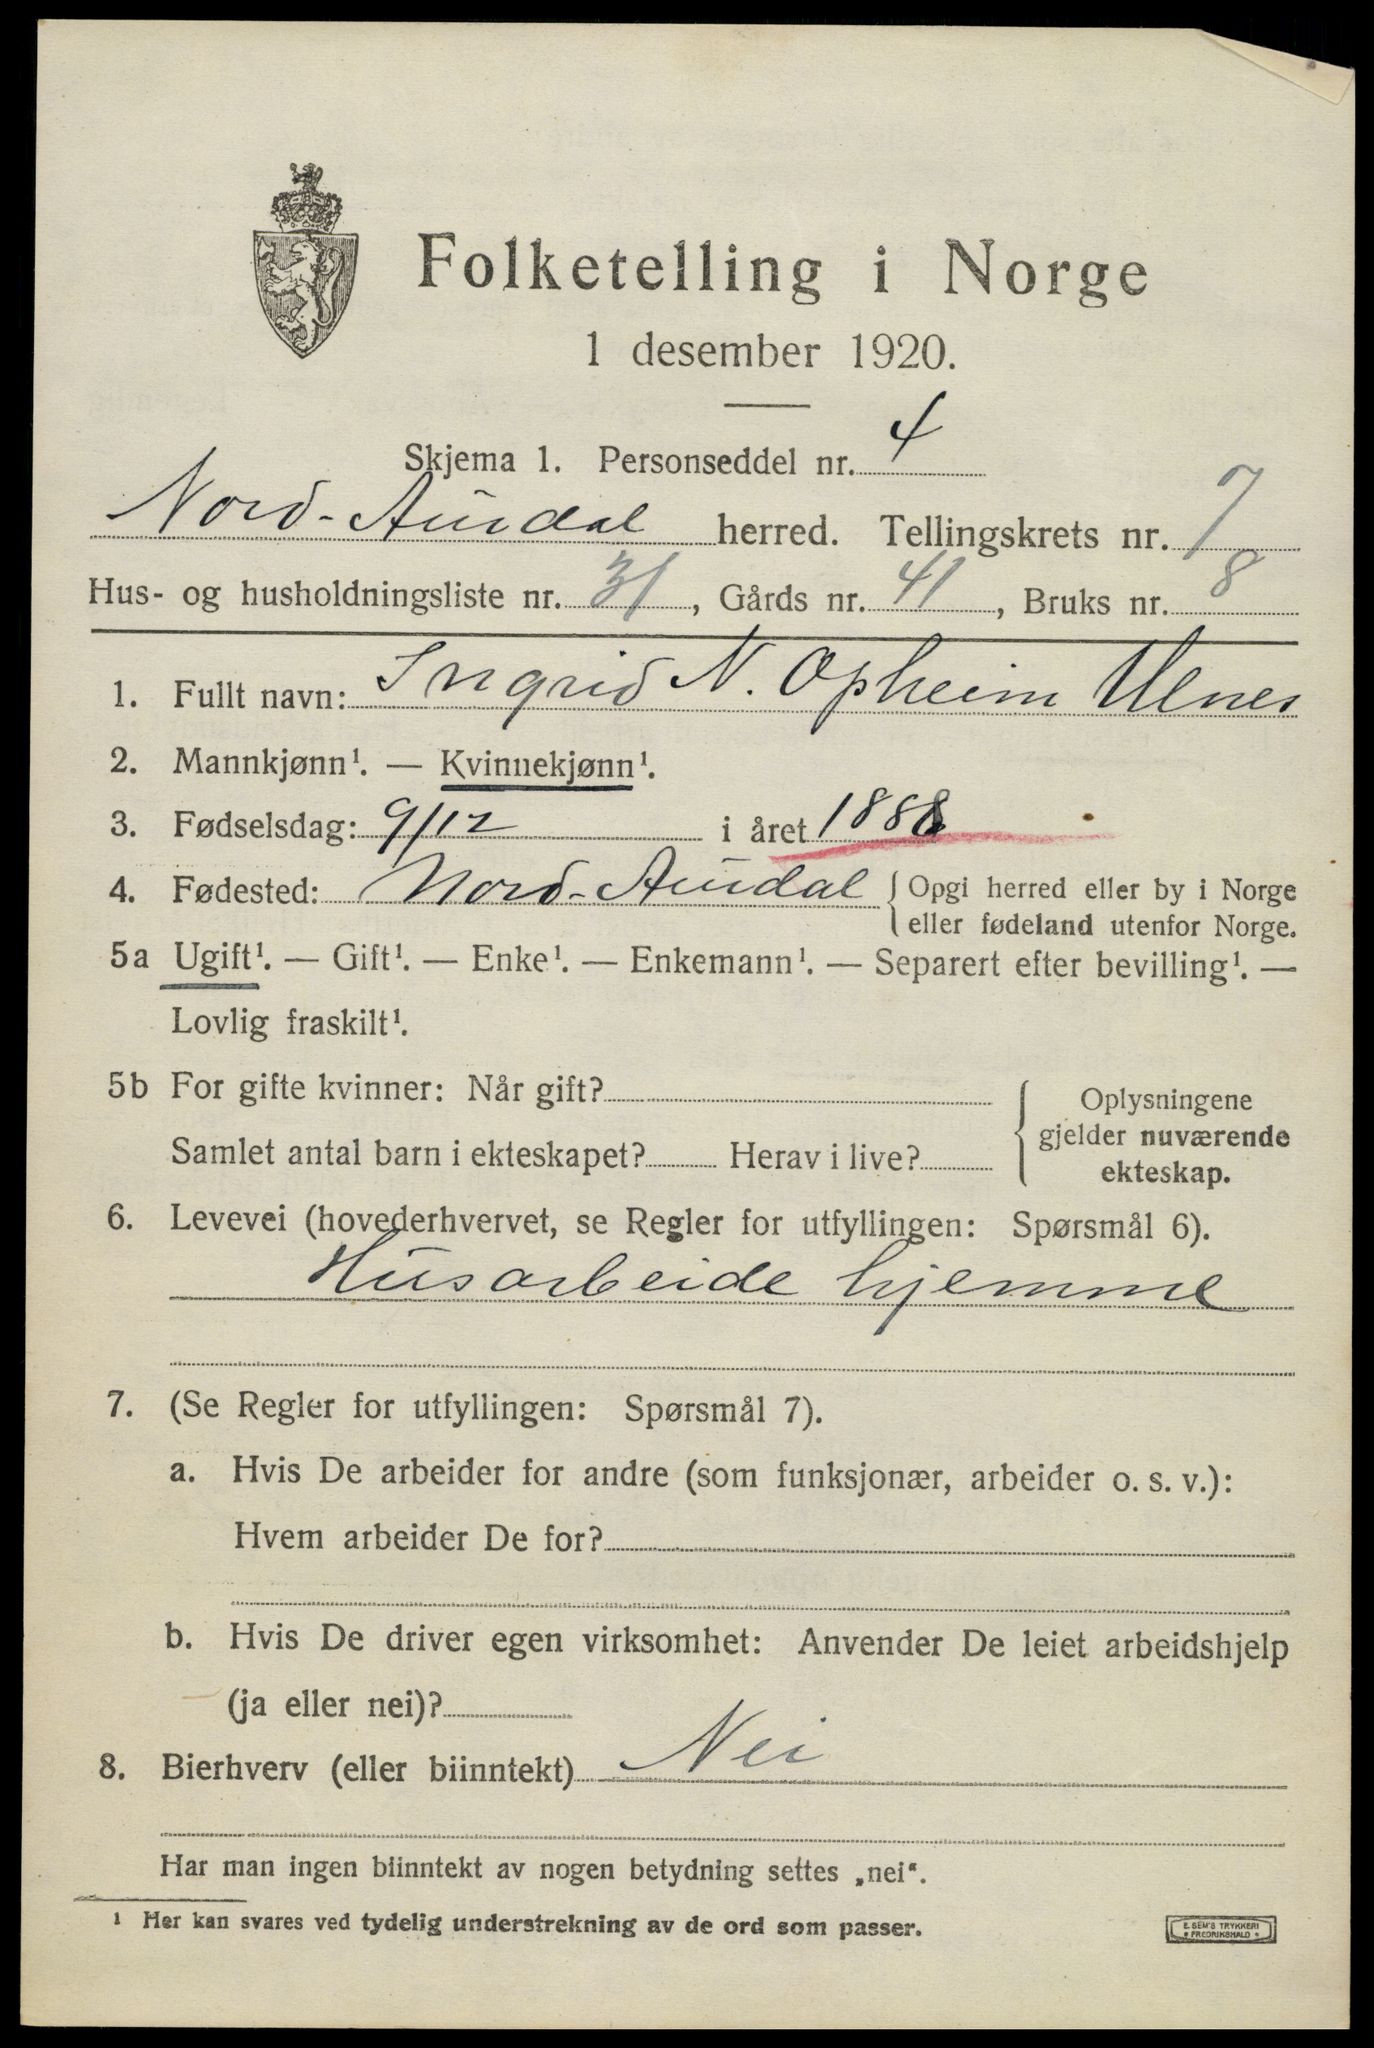 Folketelling i Norge
1 desember 1920.
Skjema 1. Personseddel nr. 4
Nord-Aurdal herred. Tellingskrets nr. 7
Hus- og husholdningsliste nr. 31, Gårds nr. 41, Bruks nr. 8
1. Fullt navn: Ingrid N. Opheim Ulnes
2. Mannkjønn¹. — Kvinnekjønn¹.
3. Fødselsdag: 9/12 i året 1888
4. Fødested: Nord-Aurdal { Opgi herred eller by i Norge
eller fødeland utenfor Norge.
5a Ugift¹. — Gift¹. — Enke¹. — Enkemann¹. — Separert efter bevilling¹. —
Lovlig fraskilt¹.
5b For gifte kvinner: Når gift?
Samlet antal barn i ekteskapet? Herav i live?
Oplysningene
gjelder nuværende
ekteskap.
6. Levevei (hovederhvervet, se Regler for utfyllingen: Spørsmål 6).
Husarbeide hjemme
7. (Se Regler for utfyllingen: Spørsmål 7).
a. Hvis De arbeider for andre (som funksjonær, arbeider o. s. v.):
Hvem arbeider De for?
b. Hvis De driver egen virksomhet: Anvender De leiet arbeidshjelp
(ja eller nei)?
8. Bierhverv (eller biinntekt) Nei
Har man ingen biinntekt av nogen betydning settes „nei“.
¹ Her kan svares ved tydelig understrekning av de ord som passer.
E. SEM'S TRYKKERI
FREDRIKSHALD